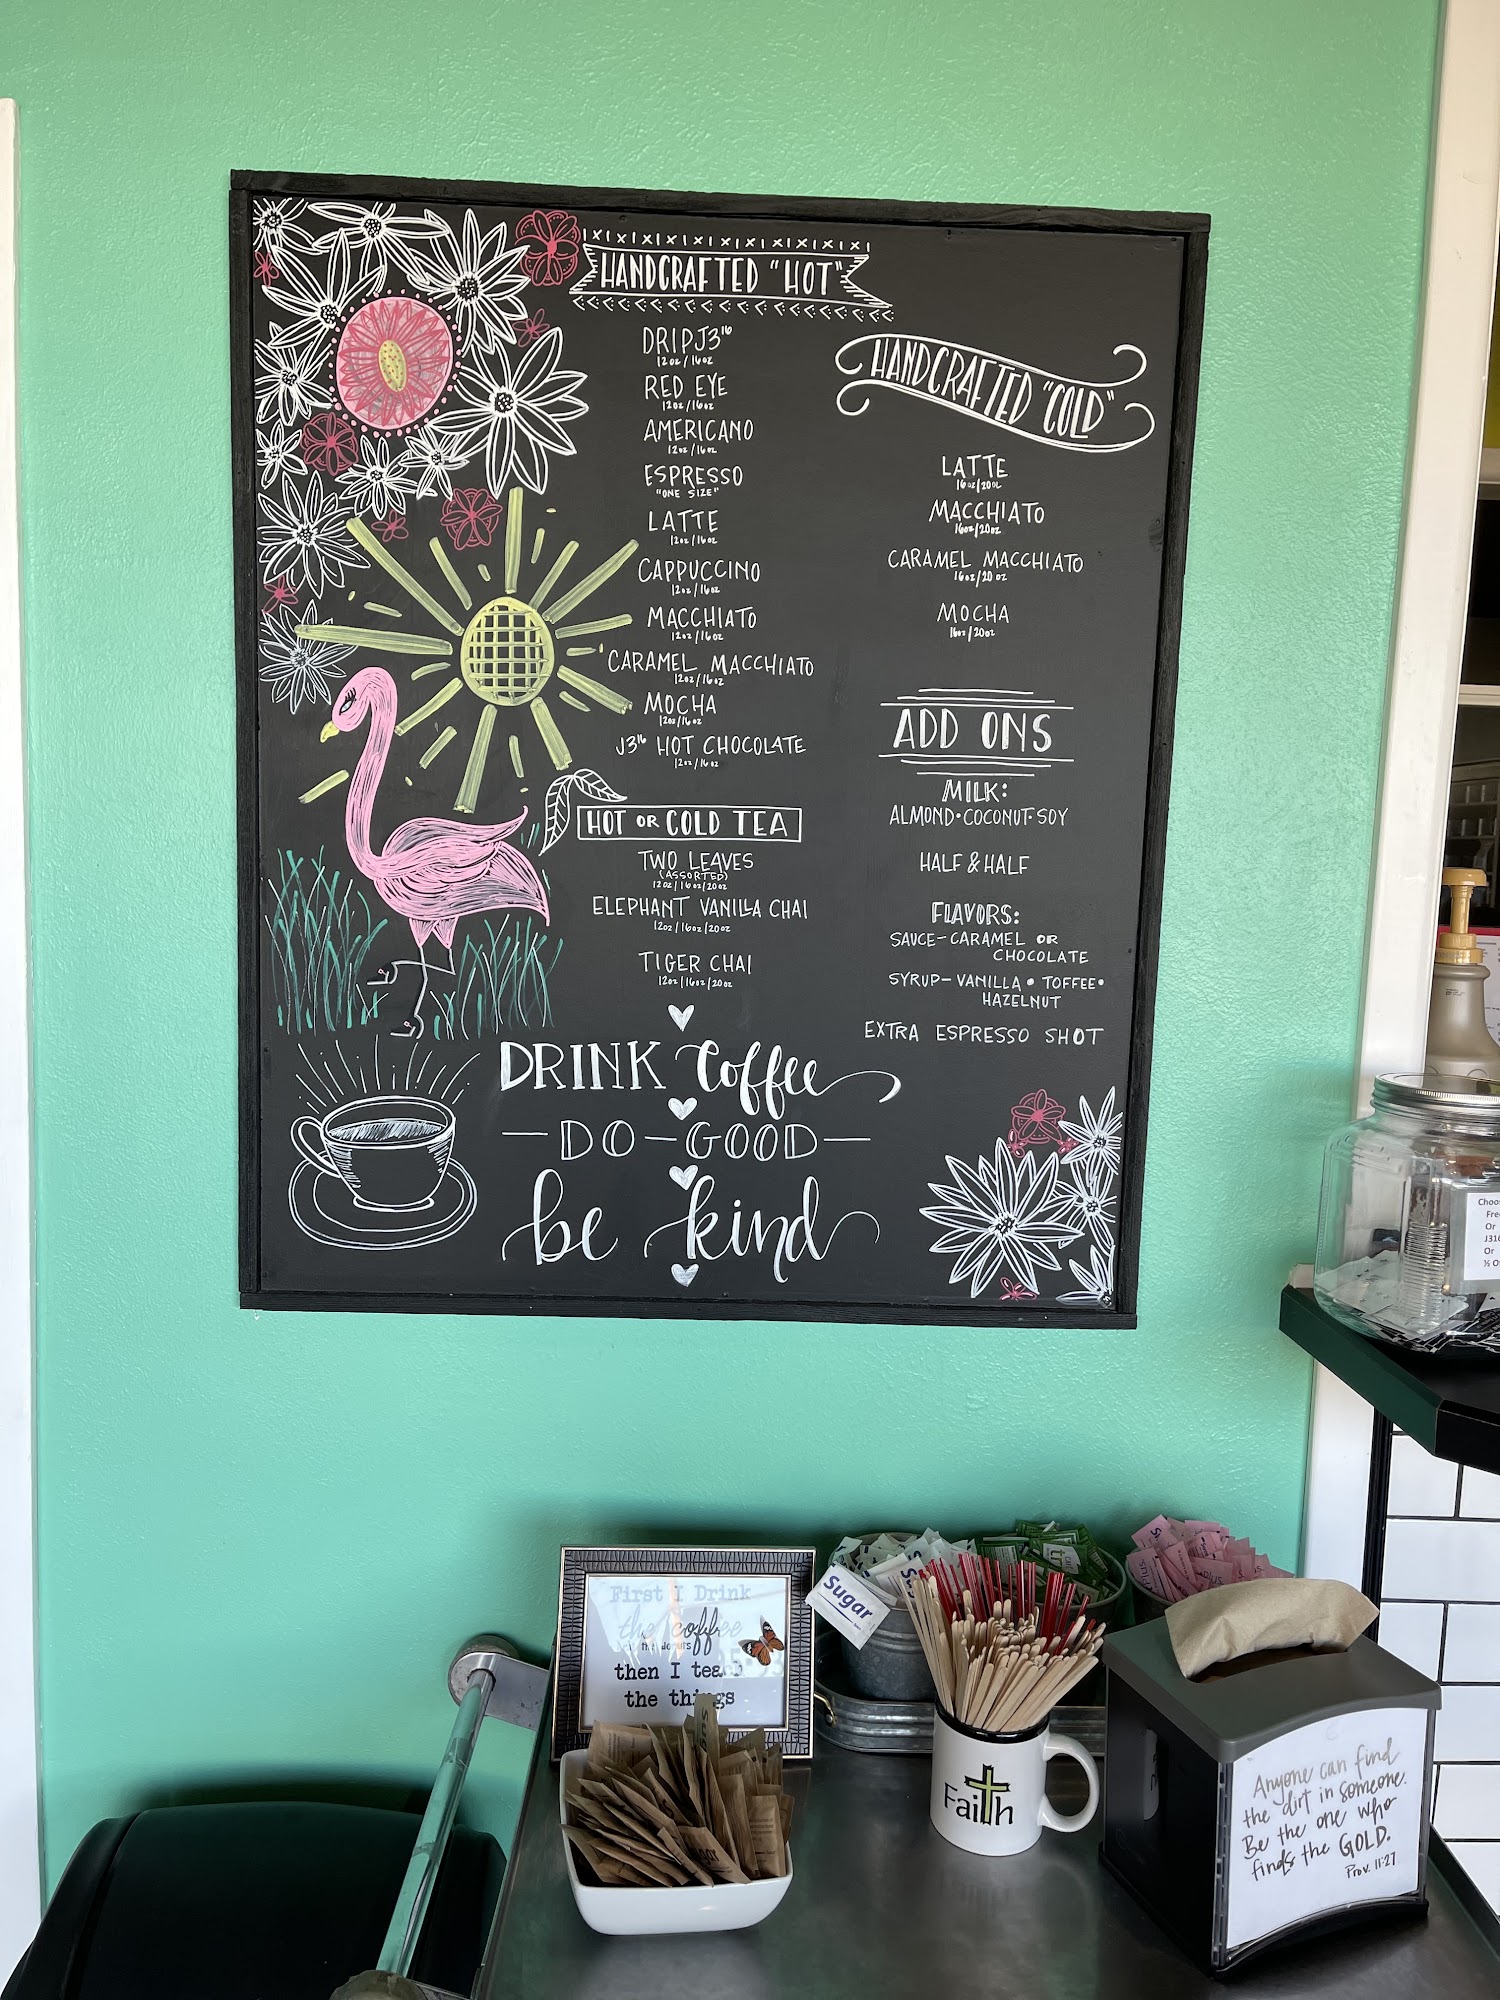 HANDCRAFTED "HOT"
DRIP J3¹⁶
12oz/16oz
RED EYE
12oz/16oz
AMERICANO
12oz/16oz
ESPRESSO
"ONE SIZE"
LATTE
12oz/16oz
CAPPUCCINO
12oz/16oz
MACCHIATO
12oz/16oz
CARAMEL MACCHIATO
12oz/16oz
MOCHA
12oz/16oz
J3¹⁶ HOT CHOCOLATE
12oz/16oz
HOT OR COLD TEA
TWO LEAVES
(ASSORTED)
12oz/16oz/20oz
ELEPHANT VANILLA CHAI
12oz/16oz/20oz
TIGER CHAI
12oz/16oz/20oz
HANDCRAFTED "COLD"
LATTE
16oz/20oz
MACCHIATO
16oz/20oz
CARAMEL MACCHIATO
16oz/20oz
MOCHA
16oz/20oz
ADD ONS
MILK:
ALMOND•COCONUT•SOY
HALF & HALF
FLAVORS:
SAUCE-CARAMEL OR
CHOCOLATE
SYRUP-VANILLA•TOFFEE•
HAZELNUT
EXTRA ESPRESSO SHOT
DRINK Coffee
-DO-GOOD-
be kind
Or
J316
Or
First I Drink
the coffee
then I teach
the things
Sugar
Faith
Anyone can find
the dirt in someone.
Be the one who
finds the GOLD.
Prov. 11:27